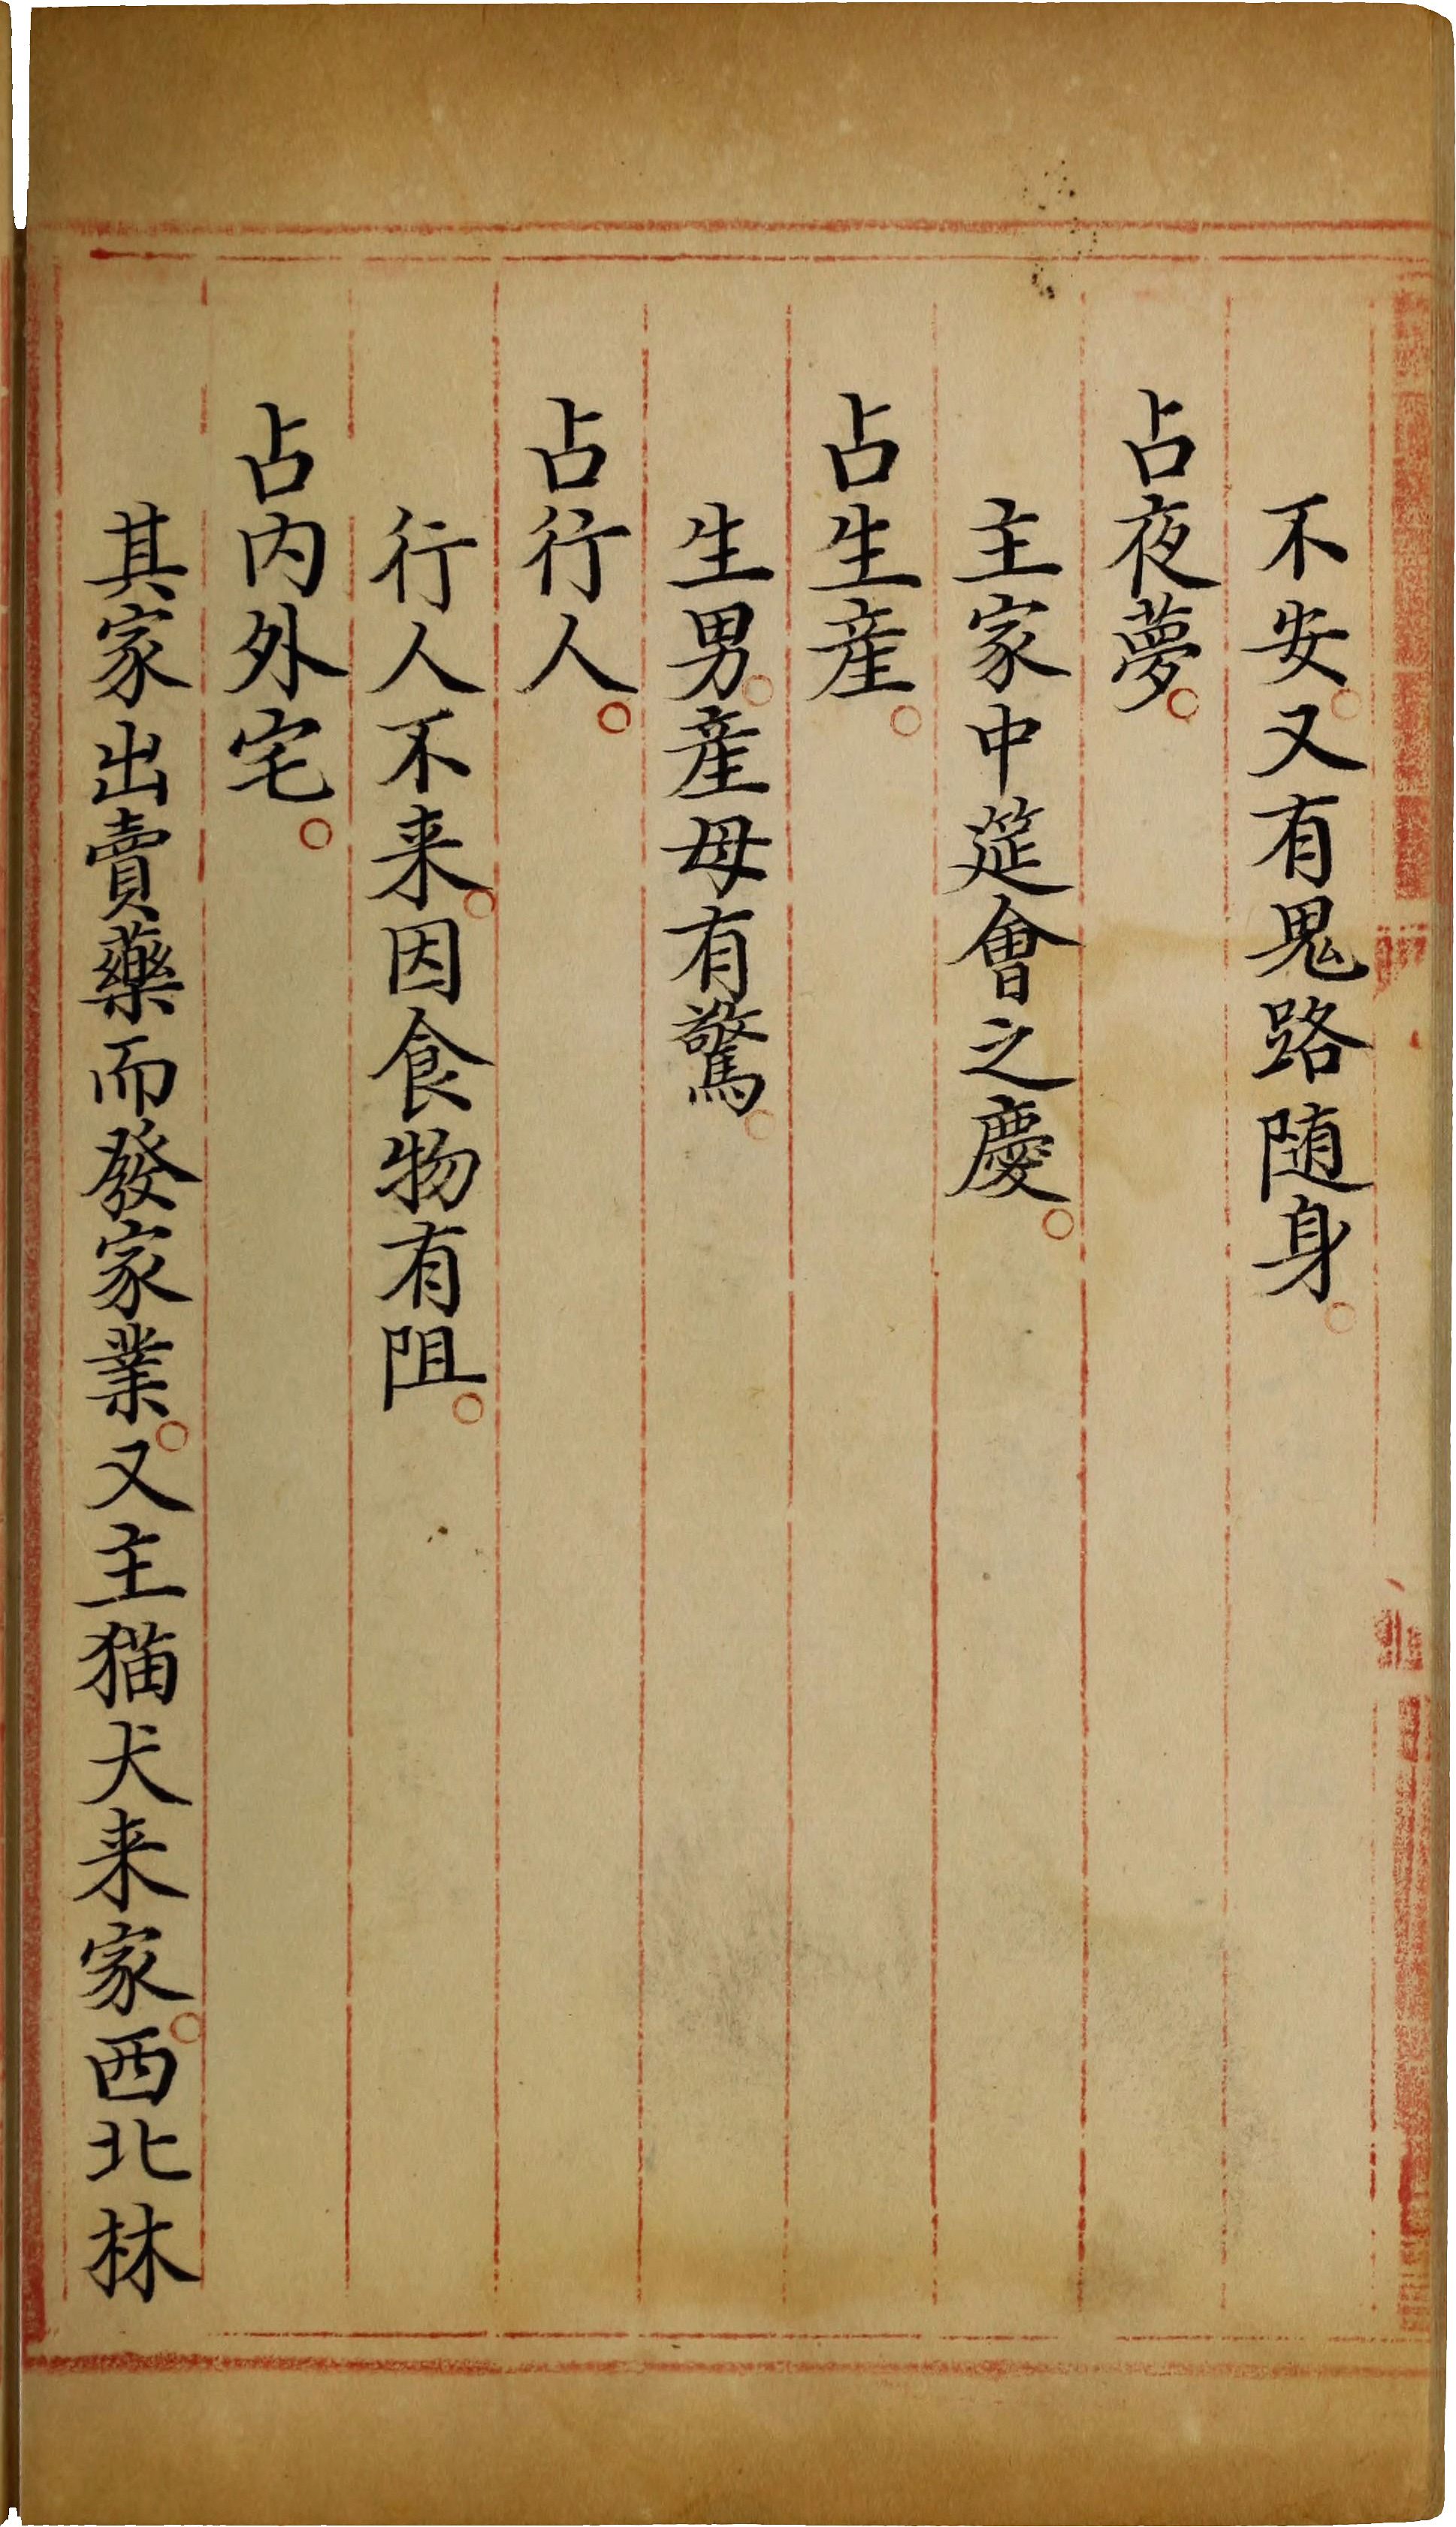 不安。又有鬼路随身。
占夜夢。
主家中筵會之慶。
占生産。
生男。産母有驚。
占行人。
行人不来。因食物有阻。
占内外宅。
其家出賣藥而發家業。又主猫犬来家。西北林